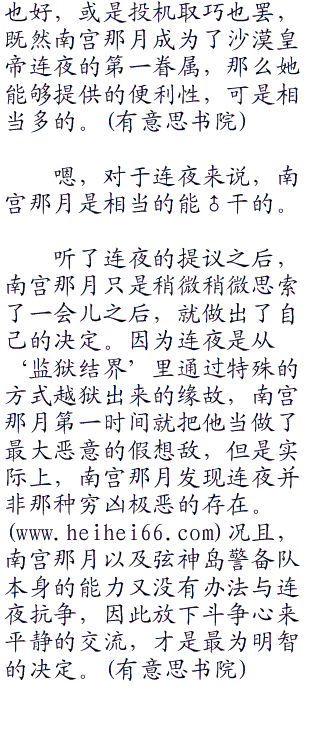 也好，或是投机取巧也罢，
既然南宫那月成为了沙漠皇
帝连夜的第一眷属，那么她
能够提供的便利性，可是相
当多的。(有意思书院)
嗯，对于连夜来说，南
宫那月是相当的能♂干的。
听了连夜的提议之后，
南宫那月只是稍微稍微思索
了一会儿之后，就做出了自
己的决定。因为连夜是从
‘监狱结界’里通过特殊的
方式越狱出来的缘故，南宫
那月第一时间就把他当做了
最大恶意的假想敌，但是实
际上，南宫那月发现连夜并
非那种穷凶极恶的存在。
(www.heihei66.com)况且，
南宫那月以及弦神岛警备队
本身的能力又没有办法与连
夜抗争，因此放下斗争心来
平静的交流，才是最为明智
的决定。(有意思书院)